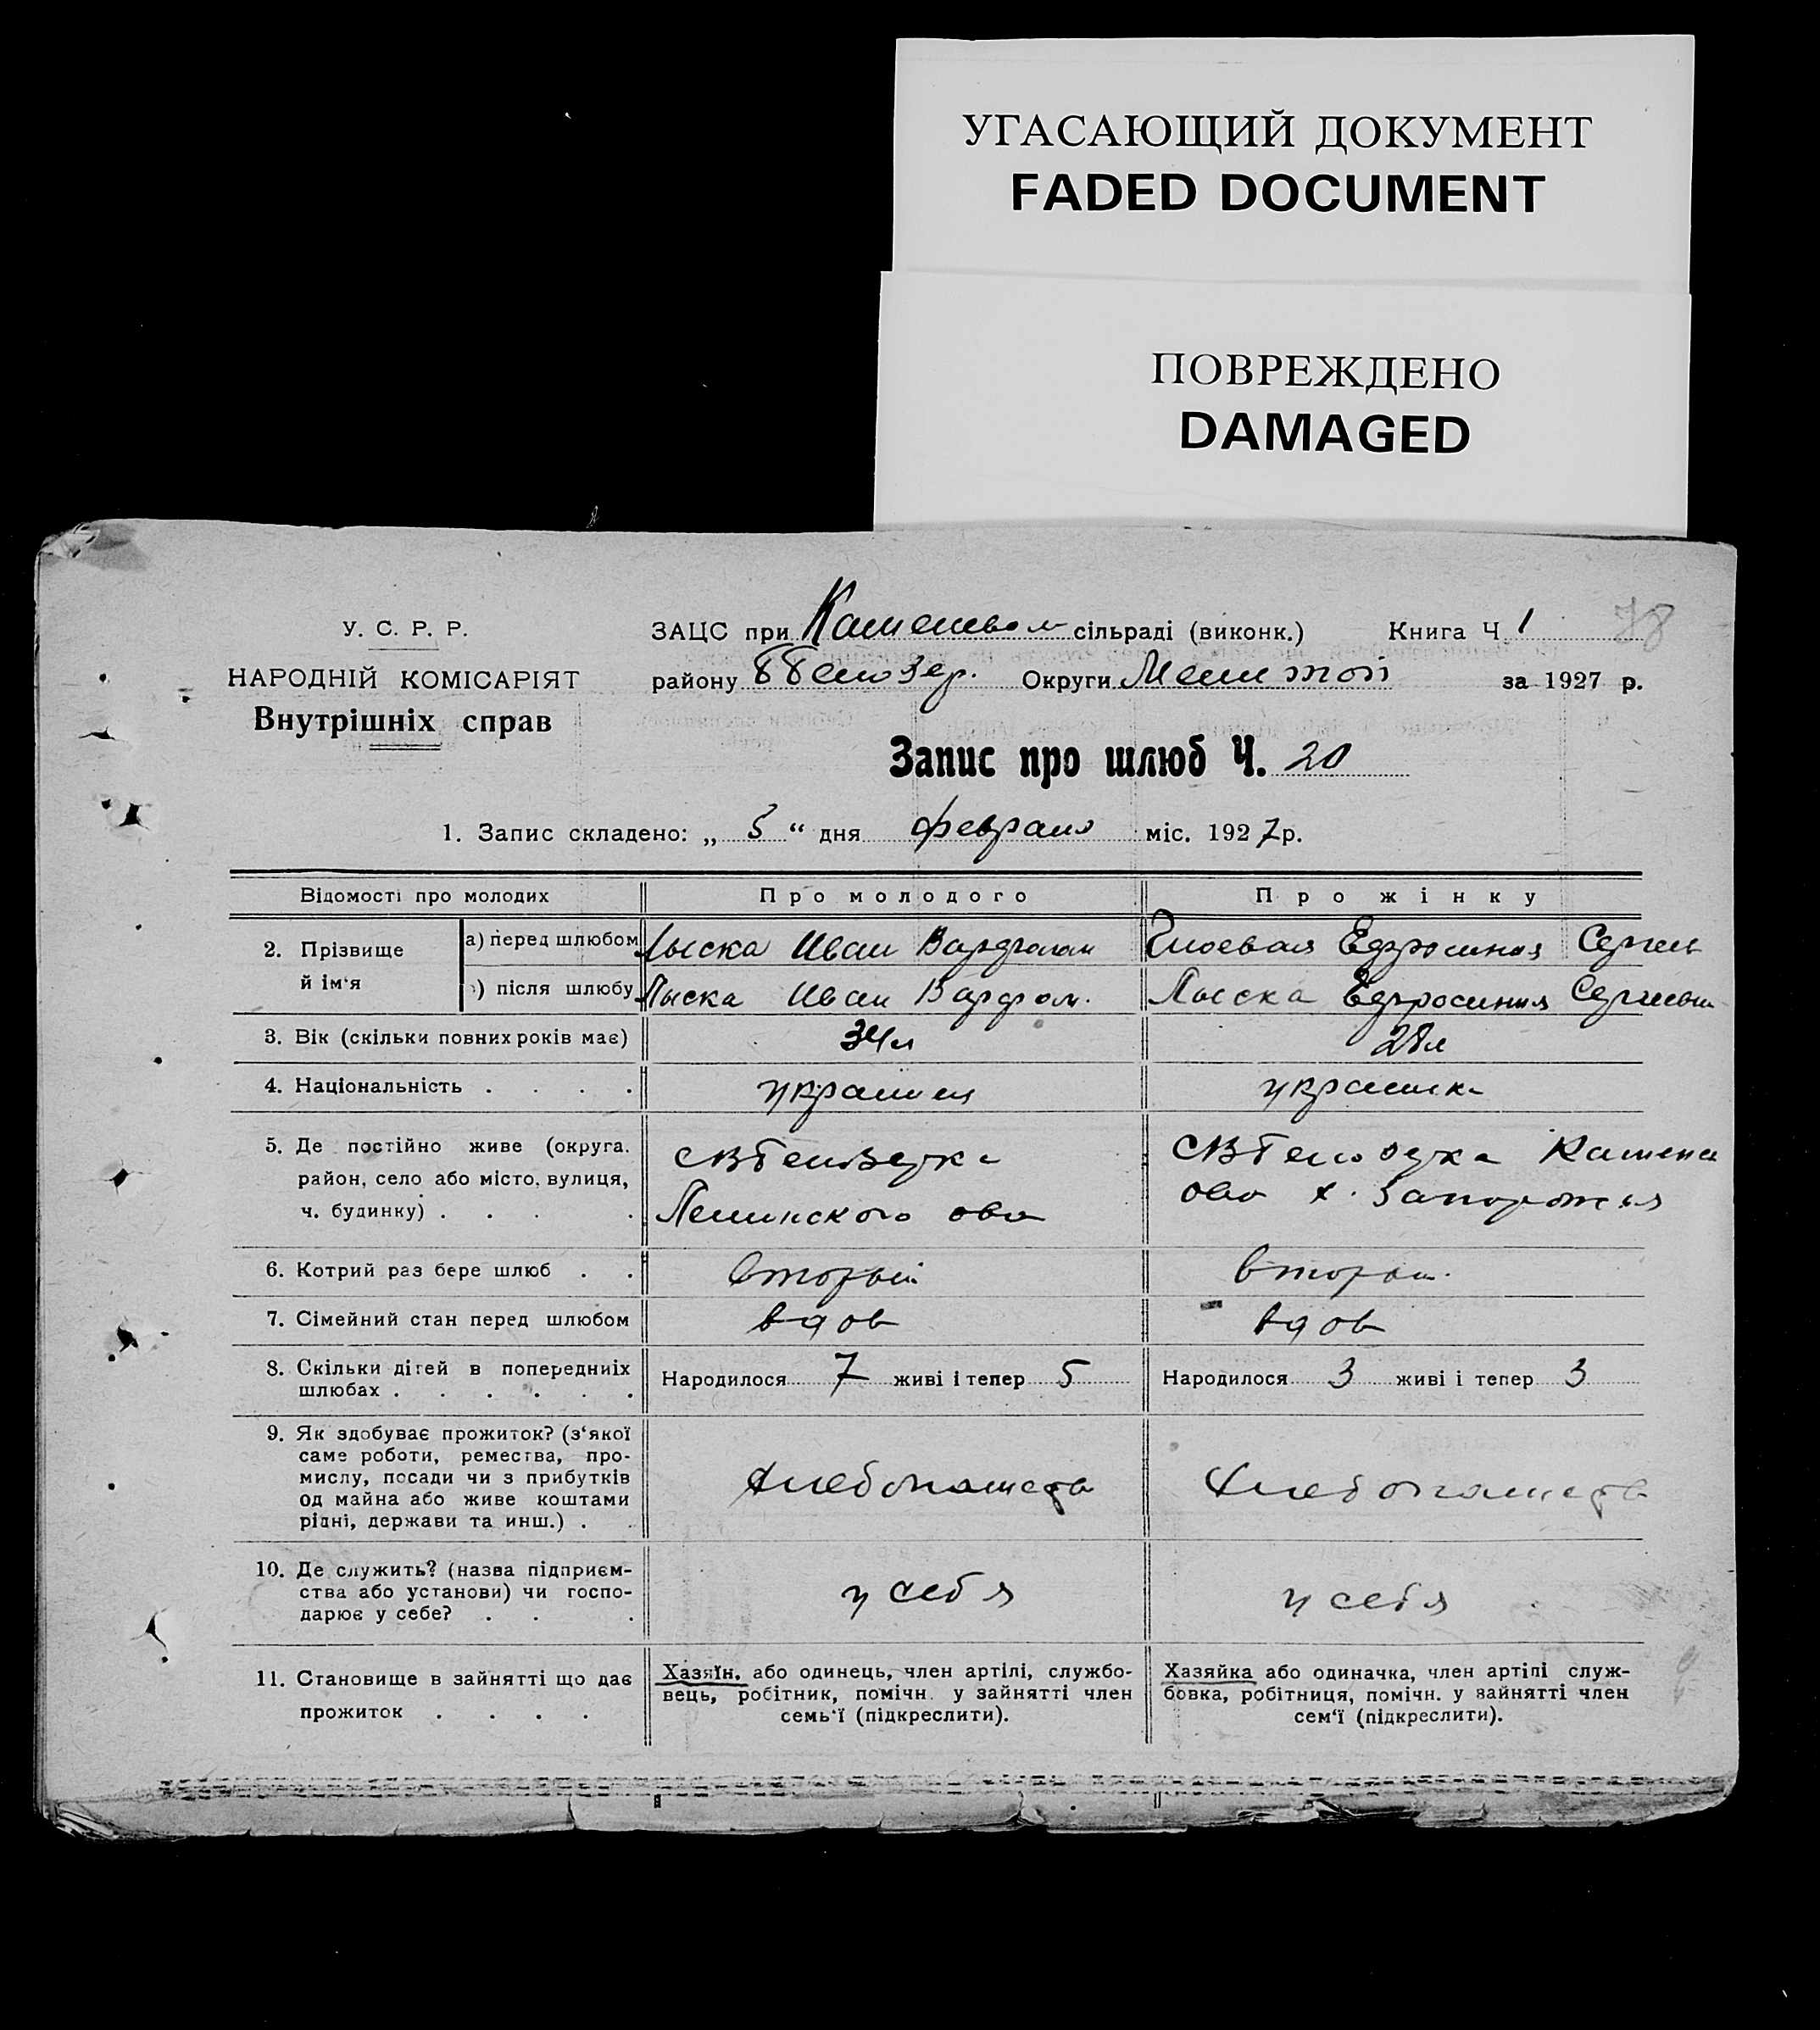 УГАСАЮЩИЙ ДОКУМЕНТ
FADED DOCUMENT
ПОВРЕЖДЕНО
DAMAGED
78
У. С. Р. Р.
НАРОДНІЙ КОМІСАРІЯТ
Внутрішніх справ
ЗАЦС при Каменевом сільраді (виконк.) Книга Ч 1
району ВБелозер. Округи Мелитоп за 1927 р.
Запис про шлюб Ч. 20
1. Запис складено: „ 5 “ дня февраля міс. 1927 р.
Відомості про молодих Про молодого Про жінку
2. Прізвище й ім‘я
а) перед шлюбом Лыска Иван Варфолом Ефросиния Сергеев
) після шлюбу Лыска Иван Варфол. Лыска Ефросиния Сергеевн
3. Вік (скільки повних років має) 34 л 28 л
4. Національність . . . . украинец украинка
5. Де постійно живе (округа.
район, село або місто, вулиця,
ч. будинку) . . . .
СВБелозерка
Ленинского ова
СВБелозерка Камена
ова х. Запорожья
6. Котрий раз бере шлюб . . вторый вторый.
7. Сімейний стан перед шлюбом вдов вдов
8. Скільки дітей в попередниіх
шлюбах . . . . . .
Народилося 7 живі і тепер 5 Народилося 3 живі і тепер 3
9. Як здобуває прожиток? (з‘якої
саме роботи, ремества, про-
мислу, посади чи з прибутків
од майна або живе коштами
рідні, держави та инш.) . .
хлебопашеств хлебопашеств
10. Де служить? (назва підприєм-
ства або установи) чи госпо-
дарює у себе? . . .
у себя у себя
11. Становище в зайнятті що дає
прожиток . . . .
Хазяїн, або одинець, член артілі, службо-
вець, робітник, помічн. у зайнятті член
семь‘ї (підкреслити).
Хазяйка або одиначка, член артілі служ-
бовка, робітниця, помічн. у зайнятті член
сем‘ї (підкреслити).